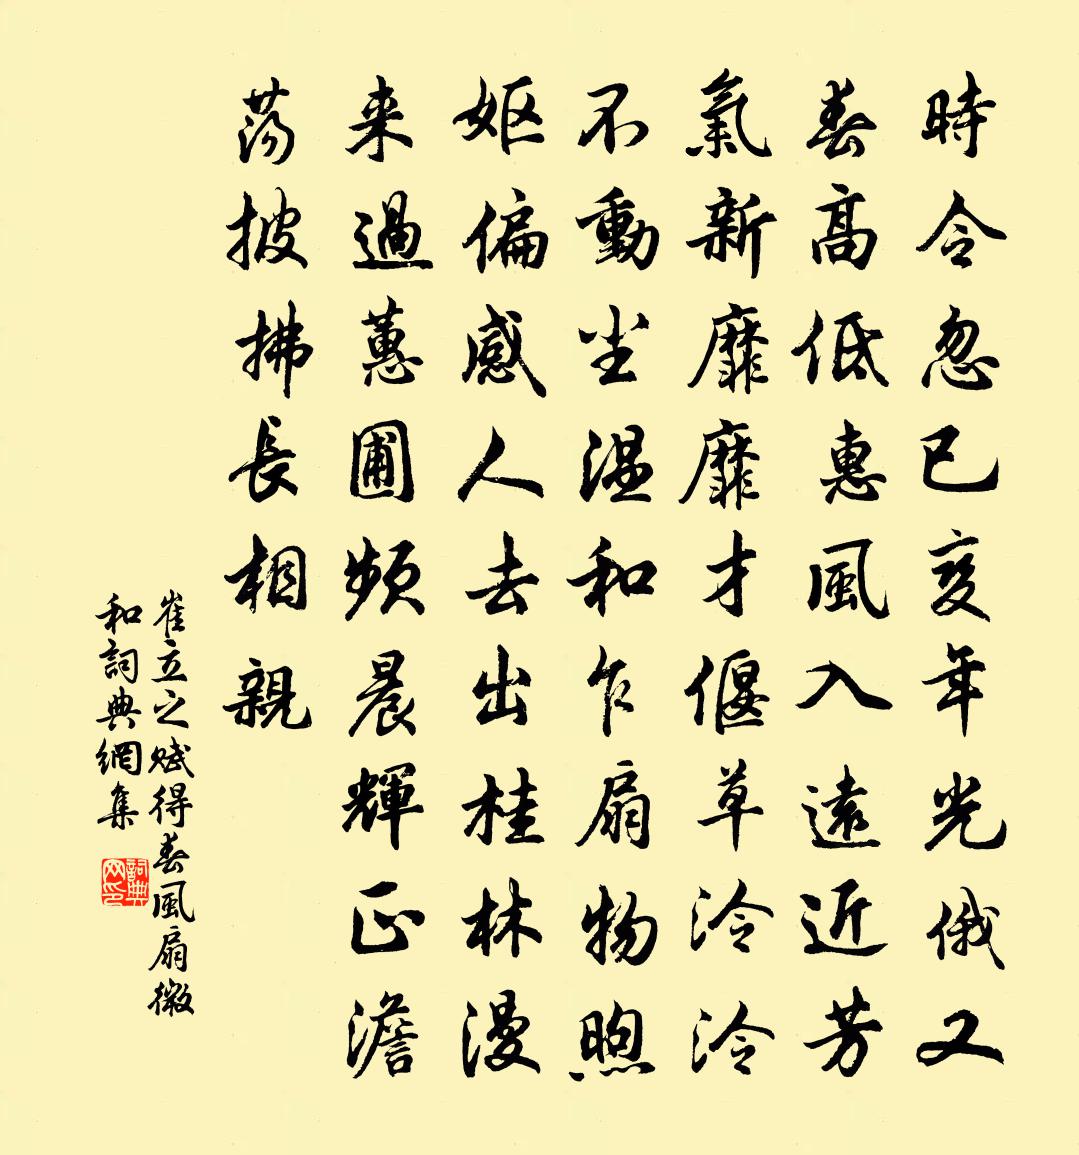 時令忽已變年光俄又
春高低惠風入遠近芳
氣新靡靡才偃草泠泠
不動尘溫和乍扇物煦
嫗偏感人去出桂林漫
来過蕙圃頻晨輝正澹
蕩披拂長相親
崔立之賦得春風扇微
和詞典網集
詞典网印